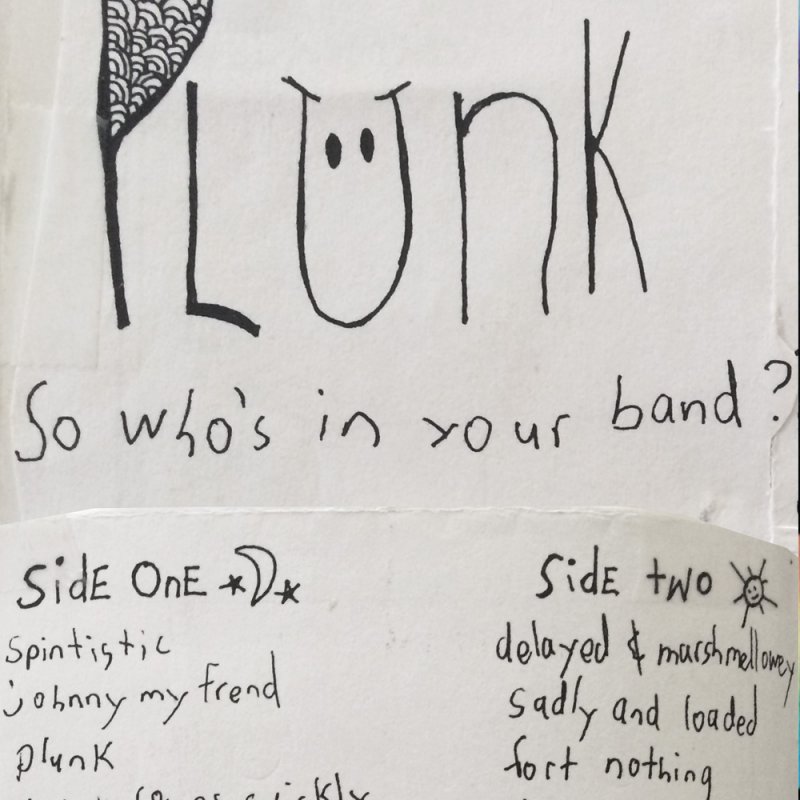 PLUnK
So who's in your band?
SidE OnE
spintistic
johnny my frend
plunk
SidE two
delayed & marshmellowey
sadly and loaded
fort nothing